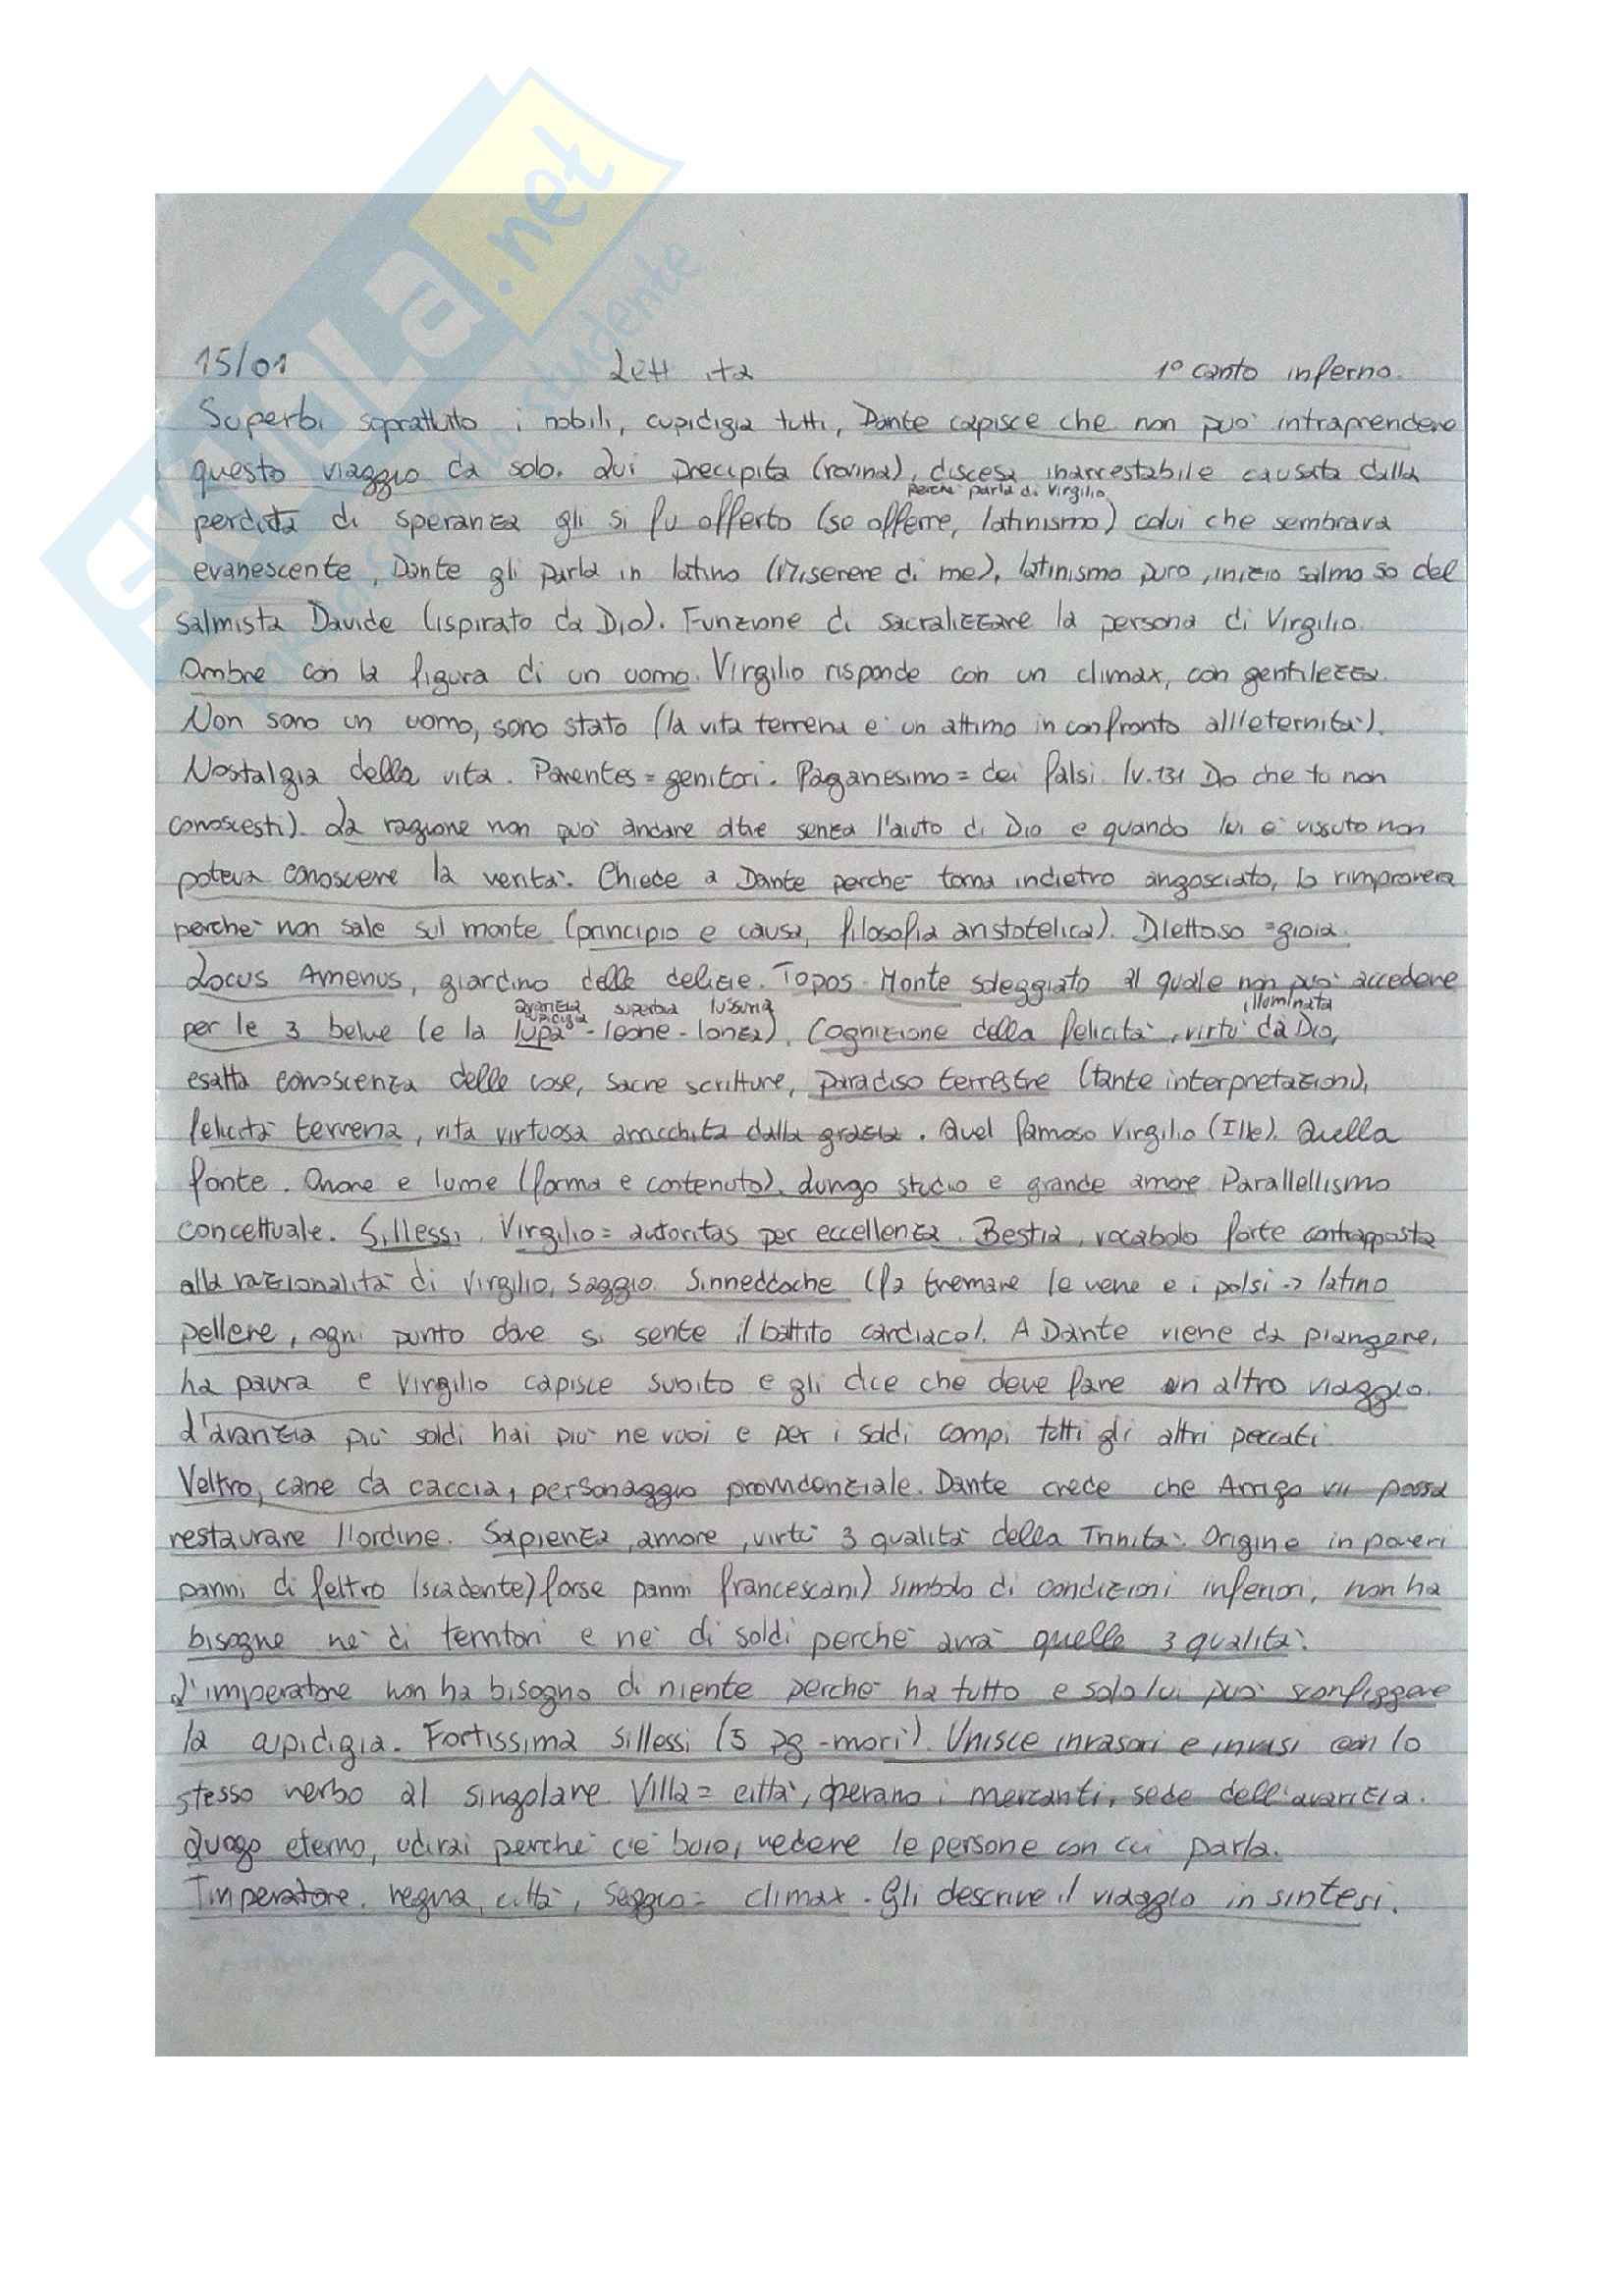 SKUOLA.net
studente
15/01 Lett ita 1° canto inferno.
Superbi soprattutto i nobili, cupidigia tutti, Dante capisce che non può intraprendere
questo viaggio da solo. Qui precipita (rovina), discesa inarrestabile causata dalla
perchè parla di Virgilio
perdita di speranza gli si fu offerto (se offerre, latinismo) colui che sembrava
evanescente, Dante gli parla in latino (Miserere di me), latinismo puro, inizio salmo 50 del
salmista Davide (ispirato da Dio). Funzione di sacralizzare la persona di Virgilio.
Ombre con la figura di un uomo. Virgilio risponde con un climax, con gentilezza.
Non sono un uomo, sono stato (la vita terrena è un attimo in confronto all'eternità).
Nostalgia della vita. Parentes = genitori. Paganesimo = dei falsi. (v.131 Dio che tu non
conoscesti). La ragione non può andare oltre senza l'aiuto di Dio e quando lui è vissuto non
poteva conoscere la verità. Chiede a Dante perchè torna indietro angosciato, lo rimprovera
perchè non sale sul monte (principio e causa, filosofia aristotelica). Dilettoso = gioia.
Locus Amenus, giardino delle delizie. Topos. Monte soleggiato al quale non può accedere
avarizia cupidigia superbia lussuria illuminata
per le 3 belve (e la lupa - leone - lonza). Cognizione della felicità, virtù da Dio,
esatta conoscenza delle cose, sacre scritture, paradiso terrestre (tante interpretazioni),
felicità terrena, vita virtuosa arricchita dalla grazia. Quel famoso Virgilio (Ille). Quella
fonte. Onore e lume (forma e contenuto). Lungo studio e grande amore Parallellismo
concettuale. Sillessi. Virgilio = autoritas per eccellenza. Bestia, vocabolo forte contrapposta
alla razionalità di Virgilio, saggio. Sinneddoche (fa tremare le vene e i polsi -> latino
pellere, ogni punto dove si sente il battito cardiaco). A Dante viene da piangere,
ha paura e Virgilio capisce subito e gli dice che deve fare un altro viaggio.
L'avarizia più soldi hai più ne vuoi e per i soldi compi tutti gli altri peccati
Veltro, cane da caccia, personaggio provvidenziale. Dante crede che Arrigo VII possa
restaurare l'ordine. Sapienza, amore, virtù 3 qualità della Trinità. Origine in poveri
panni di feltro (scadente) forse panni francescani) simbolo di condizioni inferiori, non ha
bisogne nè di territori e nè di soldi perchè avrà quelle 3 qualità.
L'imperatore non ha bisogno di niente perchè ha tutto e solo lui può sconfiggere
la cupidigia. Fortissima sillessi (5 pg - morì). Unisce invasori e invasi con lo
stesso verbo al singolare. Villa = città, operano i mercanti, sede dell'avarizia.
Luogo eterno, udirai perchè c'è buio, vedere le persone con cui parla.
Imperatore, regna, città, seggio = climax. Gli descrive il viaggio in sintesi.